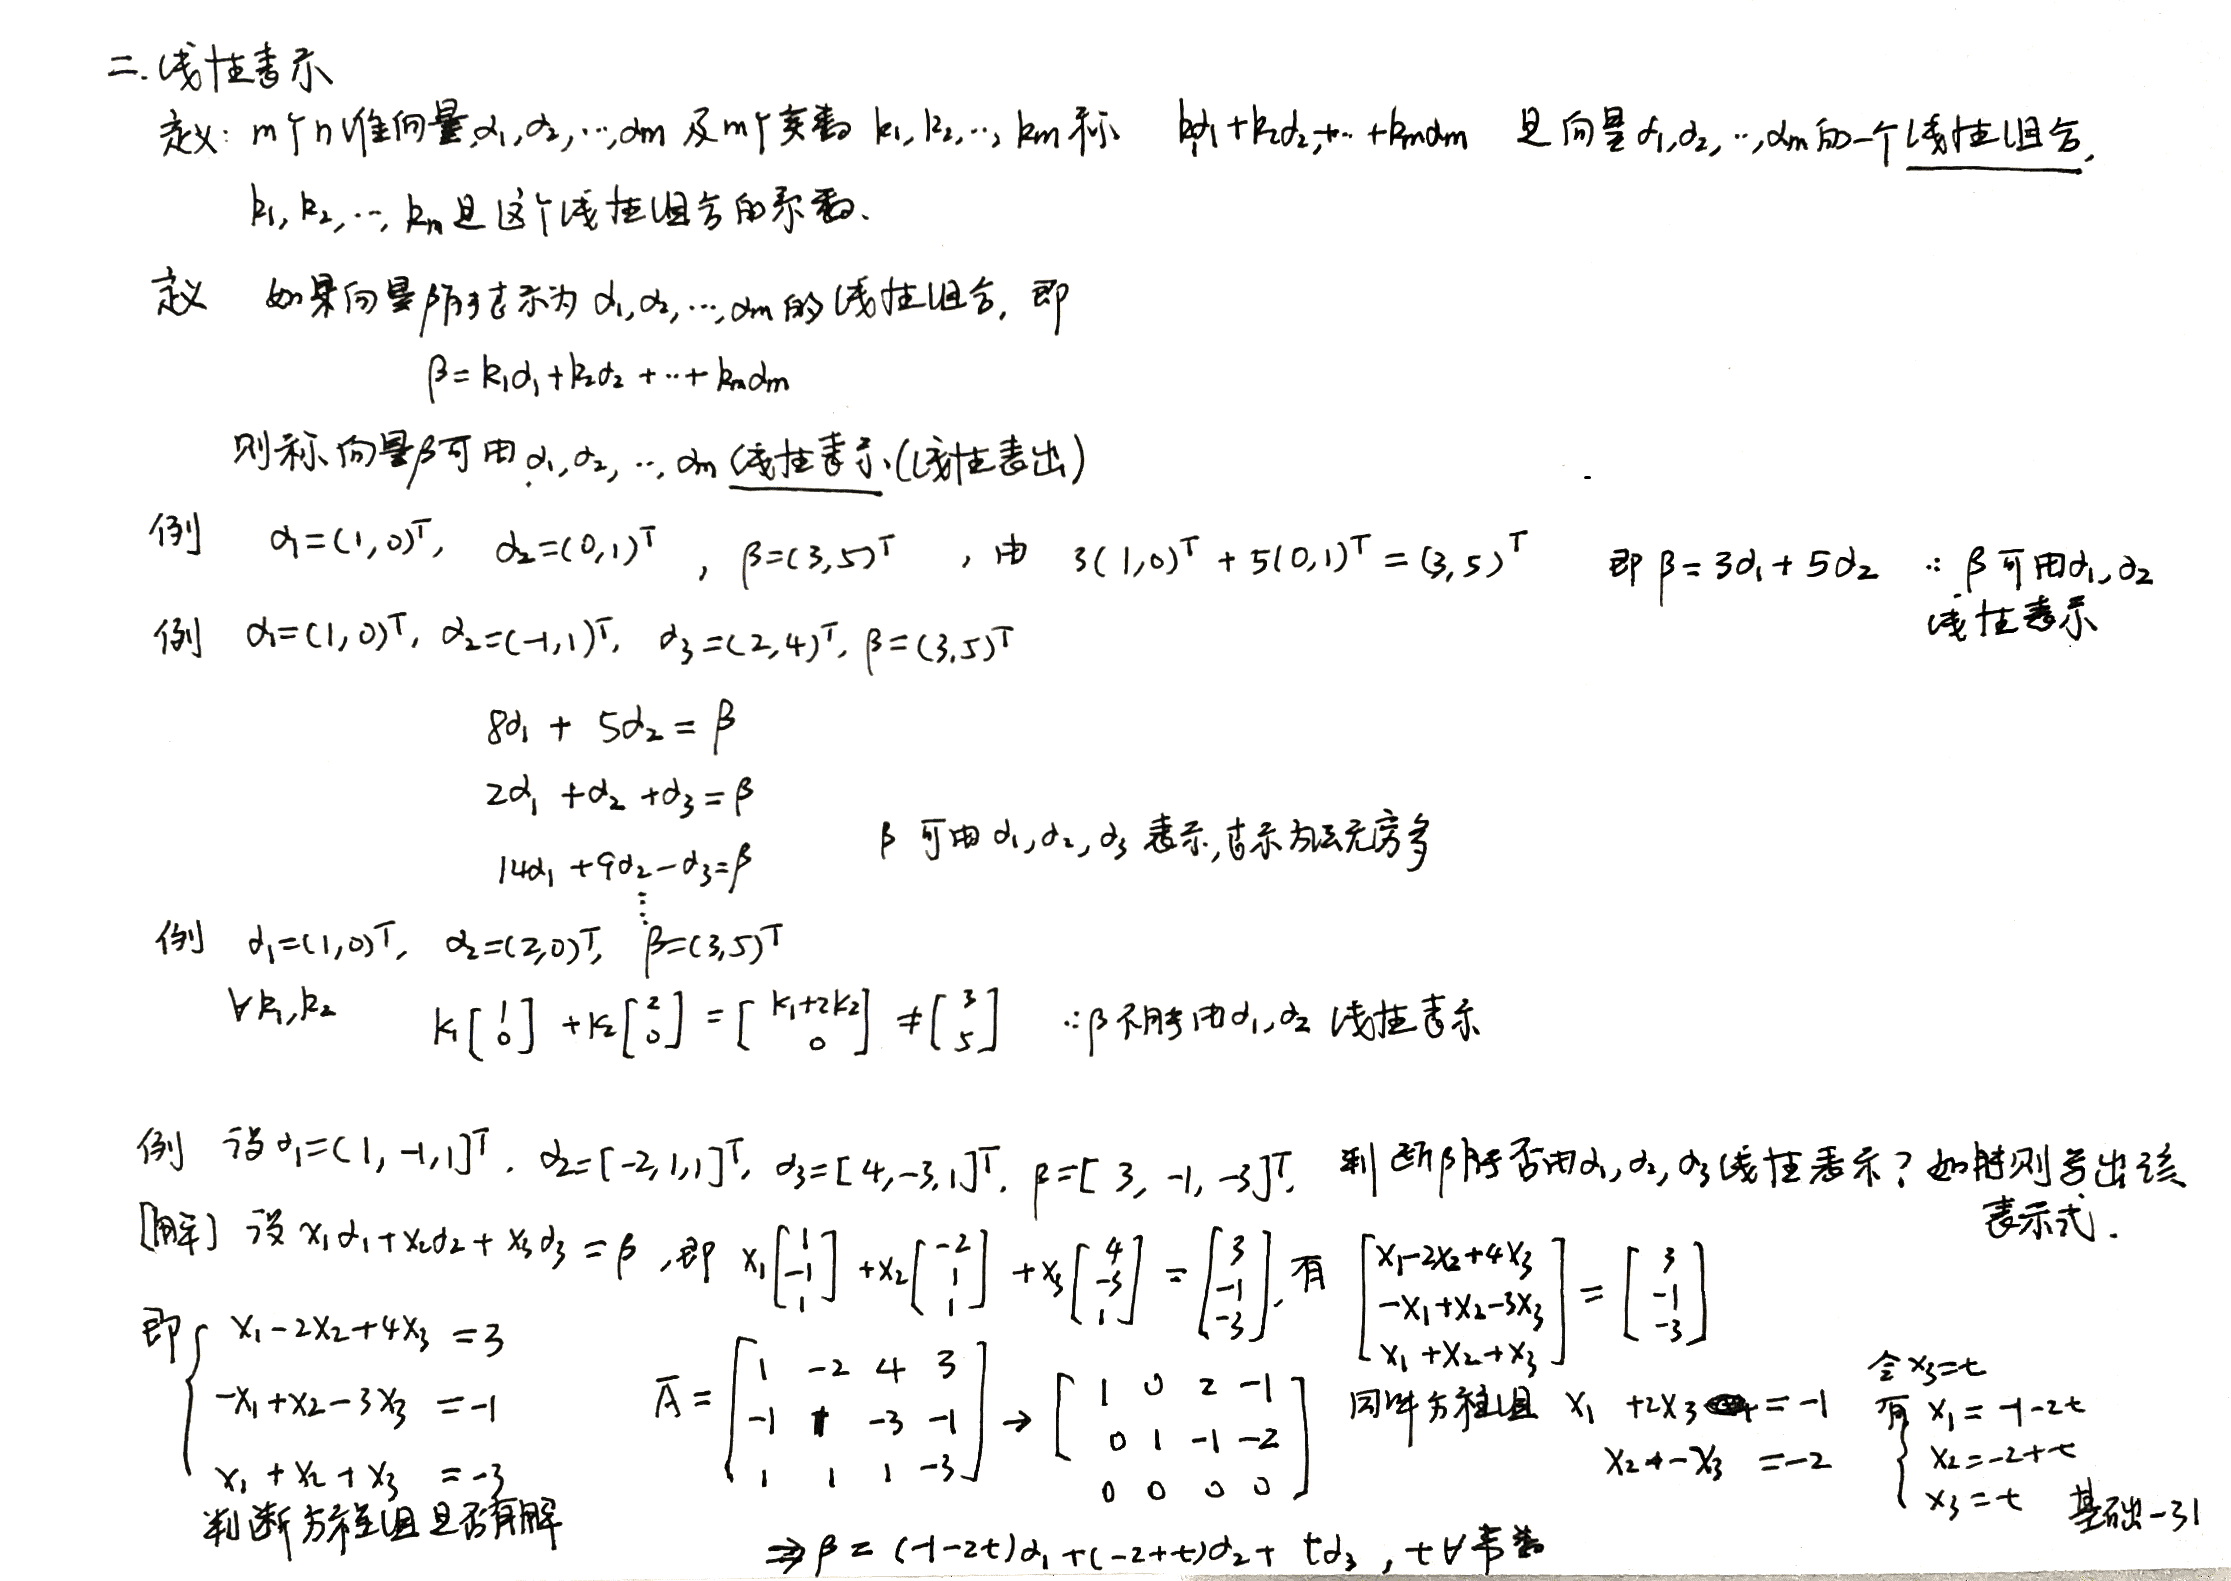 二. 线性表示
定义: m个n维向量α₁,α₂,…,αm 及m个实数 k₁,k₂,…,km 称 k₁α₁+k₂α₂+…+kmαm 是向量α₁,α₂,…,αm的一个线性组合,
k₁,k₂,…,km是这个线性组合的系数.
定义 如果向量β能表示为α₁,α₂,…,αm的线性组合, 即
β=k₁α₁+k₂α₂+…+kmαm
则称向量β可由α₁,α₂,…,αm 线性表示(线性表出)
例 α₁=(1,0)ᵀ, α₂=(0,1)ᵀ, β=(3,5)ᵀ, 由 3(1,0)ᵀ+5(0,1)ᵀ=(3,5)ᵀ 即β=3α₁+5α₂ ∴β可由α₁,α₂
线性表示
例 α₁=(1,0)ᵀ, α₂=(-1,1)ᵀ, α₃=(2,4)ᵀ, β=(3,5)ᵀ
8α₁ + 5α₂ = β
2α₁ +α₂ +α₃=β
β可由α₁,α₂,α₃表示,表示方法无穷多
14α₁+9α₂-α₃=β
⋮
例 α₁=(1,0)ᵀ, α₂=(2,0)ᵀ, β=(3,5)ᵀ
∀k₁,k₂ k₁[1 0] + k₂[2 0] = [k₁+2k₂ 0] ≠ [3 5] ∴β不能由α₁,α₂线性表示
例 设α₁=(1,-1,1]ᵀ, α₂=[-2,1,1]ᵀ, α₃=[4,-3,1]ᵀ, β=[3,-1,-3]ᵀ, 判断β能否由α₁,α₂,α₃线性表示? 如能则写出该
表示式.
[解] 设x₁α₁+x₂α₂+x₃α₃=β, 即 x₁[1 -1 1] + x₂[-2 1 1] + x₃[4 -3 1] = [3 -1 -3], 有 [x₁-2x₂+4x₃ -x₁+x₂-3x₃ x₁+x₂+x₃] = [3 -1 -3]
即{ x₁-2x₂+4x₃=3
-x₁+x₂-3x₃=-1
x₁+x₂+x₃=-3
判断方程组是否有解
Ā = [1 -2 4 3
-1 1 -3 -1
1 1 1 -3]
→ [1 0 2 -1
0 1 -1 -2
0 0 0 0]
同解方程组 x₁ +2x₃ =-1
x₂ -x₃ =-2
令x₃=t
有{ x₁=-1-2t
x₂=-2+t
x₃=t
⇒β=(-1-2t)α₁+(-2+t)α₂+tα₃, t∀常数
基础-31